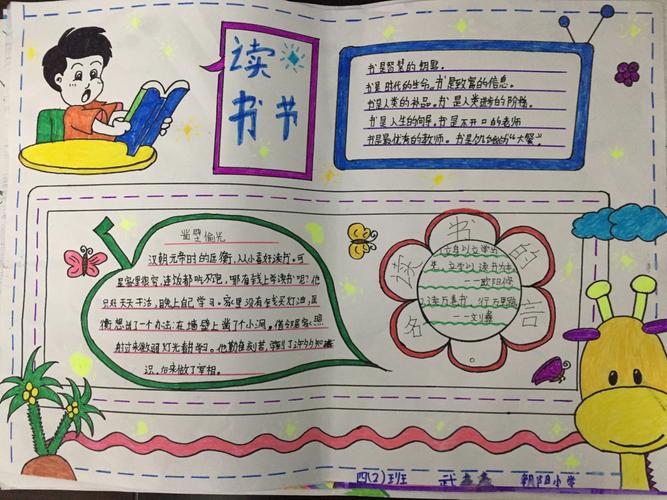 读
书节
书是智慧的钥匙。
书是时代的生命。书是致富的信息。
书是人类的补品。书是人类进步的阶梯。
书是人生的向导。书是不开口的老师
书是最优有的教师。书是
凿壁偷光
汉朝元帝时的匡衡,从小喜好读书。可
是家里很穷,连饭都吃不饱,哪有钱上学读书呢?他
只好天天干活,晚上自己学习。家里没有钱买灯油,匡
衡想出了一个办法:在墙壁上凿了个小洞,借邻居家照
射过来微弱灯光朝书。他勤奋刻苦,学到了许多知
识,后来做了宰相。
读书的名言
立身以立学为
先,立学以读书为本
——欧阳修
读万卷书 行万里路
——刘彝
四(2)班 武 朝阳小学